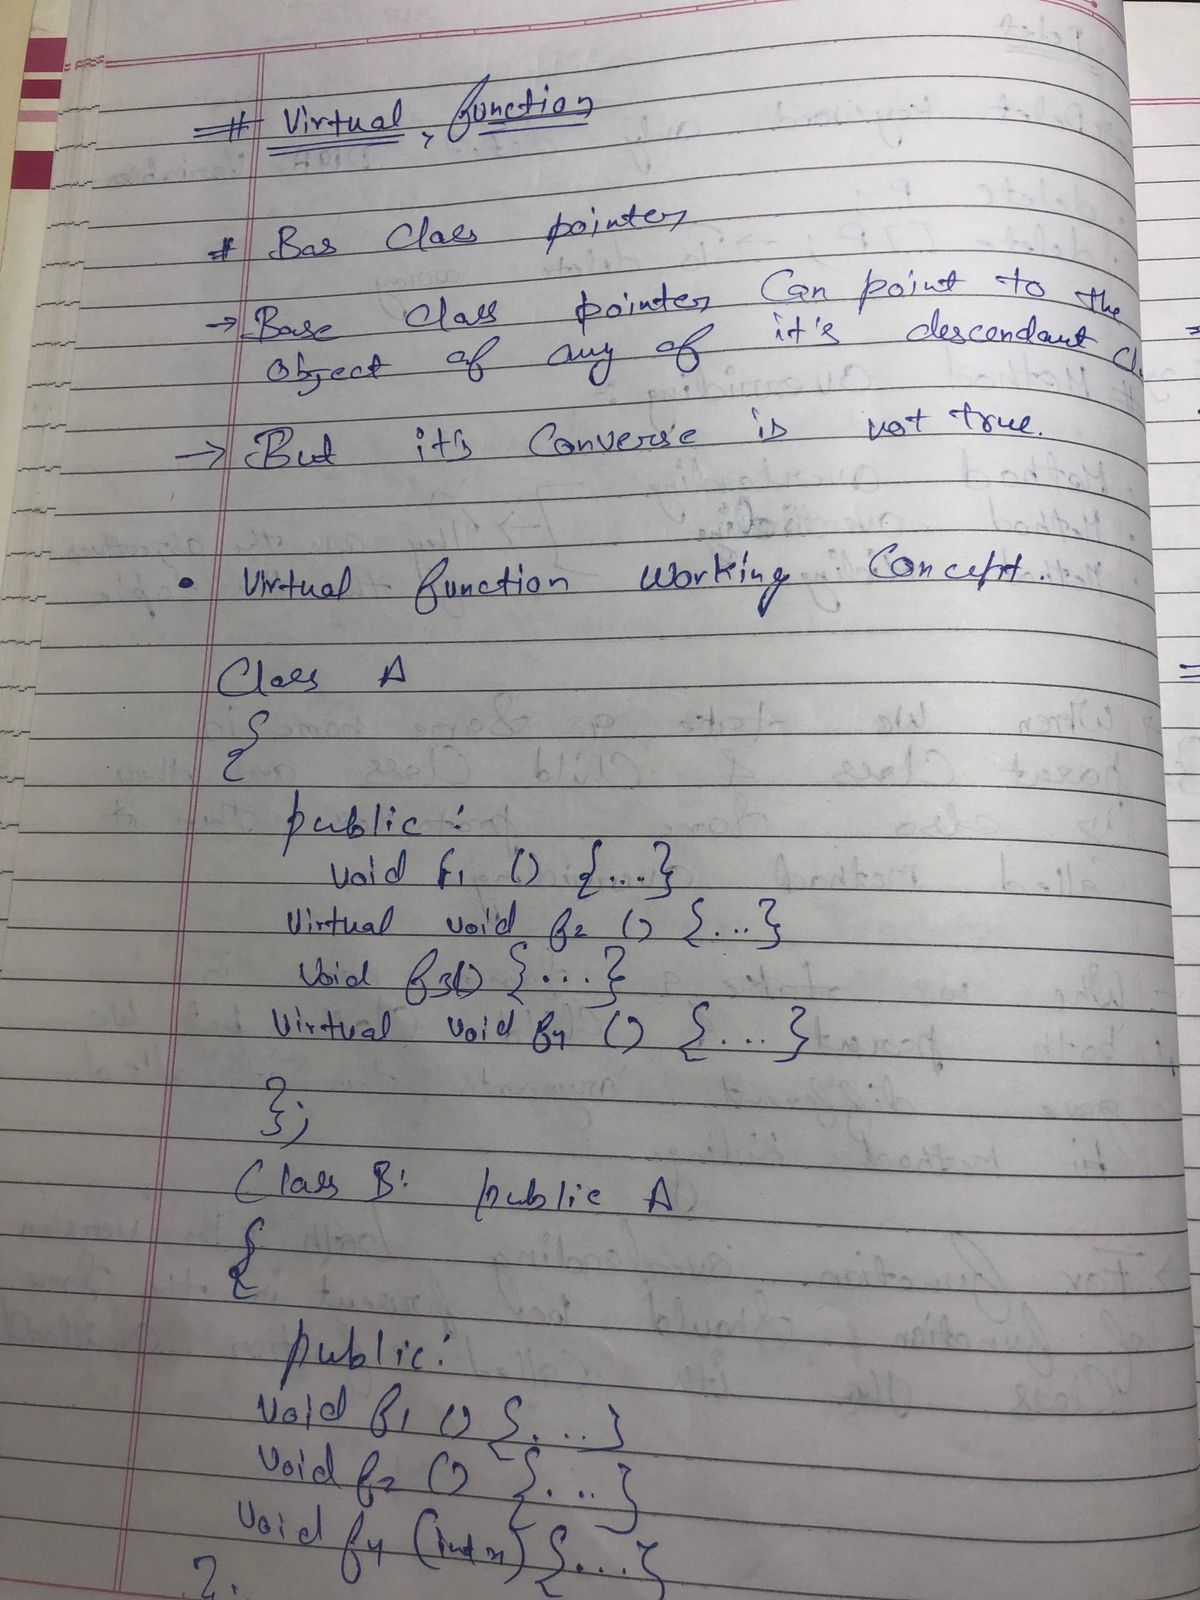 # Virtual function
# Bas Class pointer
→ Base Class pointer Can point to the
object of any of it's descendant
→ But it's Converse is not true.
• Virtual function Working Concept.
Class A
{
public :
void f1 () {...}
Virtual void f2 () {...}
void f3() {...}
Virtual void f4 () {...}
};
Class B: public A
{
public:
void f1 () {...}
void f2 () {...}
void f4 (int x) {...}
};